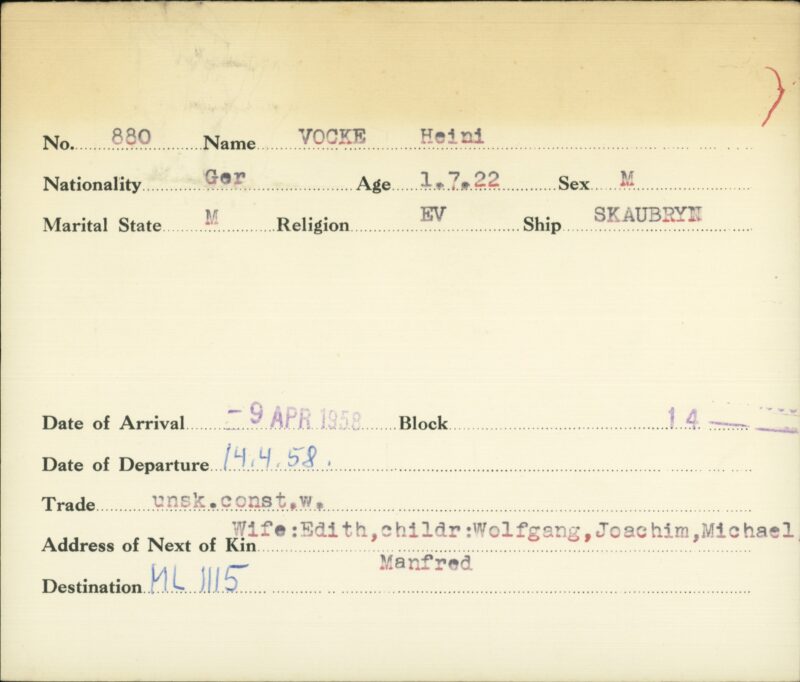 No. 880 Name VOCKE Heini
Nationality Ger Age 1.7.22 Sex M
Marital State M Religion EV Ship SKAUBRYN
Date of Arrival - 9 APR 1958 Block 14
Date of Departure 14.4.58.
Trade unsk.const.w.
Wife:Edith,childr:Wolfgang,Joachim,Michael,
Address of Next of Kin
Manfred
Destination ML 1115